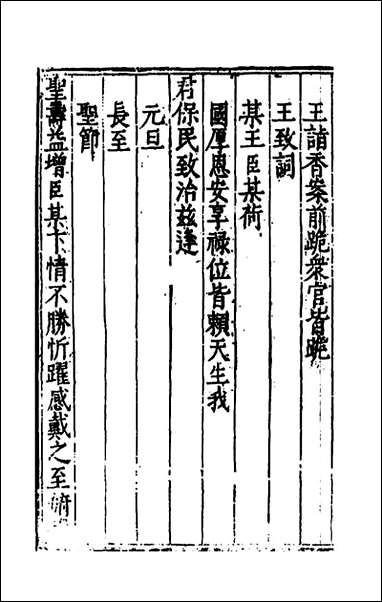 王詣香案前跪衆官皆跪
王致詞
某王臣某荷
國厚恩安享祿位皆賴天生我
君保民致治茲逢
元旦
長至
聖節
聖壽益增臣某下情不勝忻躍感戴之至俯